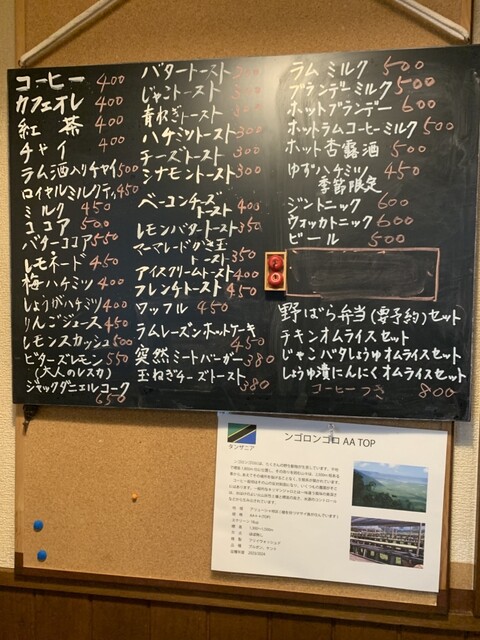 コーヒー 400
カフェオレ 400
紅茶 400
チャイ 400
ラム酒入りチャイ 500
ロイヤルミルクティ 450
ミルク 450
ココア 500
バターココア 550
レモネード 450
梅ハチミツ 400
しょうがハチミツ 400
りんごジュース 450
レモンスカッシュ 500
ビターズレモン 550
(大人のレスカ)
ジャックダニエルコーク
650
バタートースト
じゃこトースト
青ねぎトースト
ハチミツトースト 300
チーズトースト 300
シナモントースト 300
ベーコンチーズ
トースト 400
レモンバタートースト 350
マーマレードクリ玉
トースト 350
アイスクリームトースト 400
フレンチトースト 450
ワッフル 450
ラムレーズンホットケーキ
450
突然ミートバーガー 380
玉ねぎチーズトースト 380
ラムミルク 500
ブランデーミルク 500
ホットブランデー 600
ホットラムコーヒーミルク 500
ホット杏露酒 500
ゆずハチミツ 450
季節限定
ジントニック 600
ウォッカトニック 600
ビール 500
野ばら弁当(要予約)セット
チキンオムライスセット
じゃこバタしょうゆオムライスセット
しょうゆ漬にんにくオムライスセット
コーヒーつき 800
タンザニア
ンゴロンゴロ AA TOP